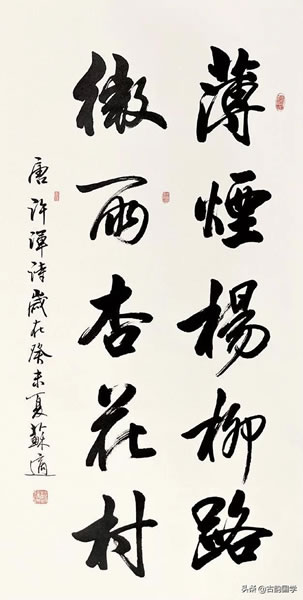 薄煙楊柳路
微雨杏花村
唐許渾詩歲在癸未夏蘇適
头条@古韵国学